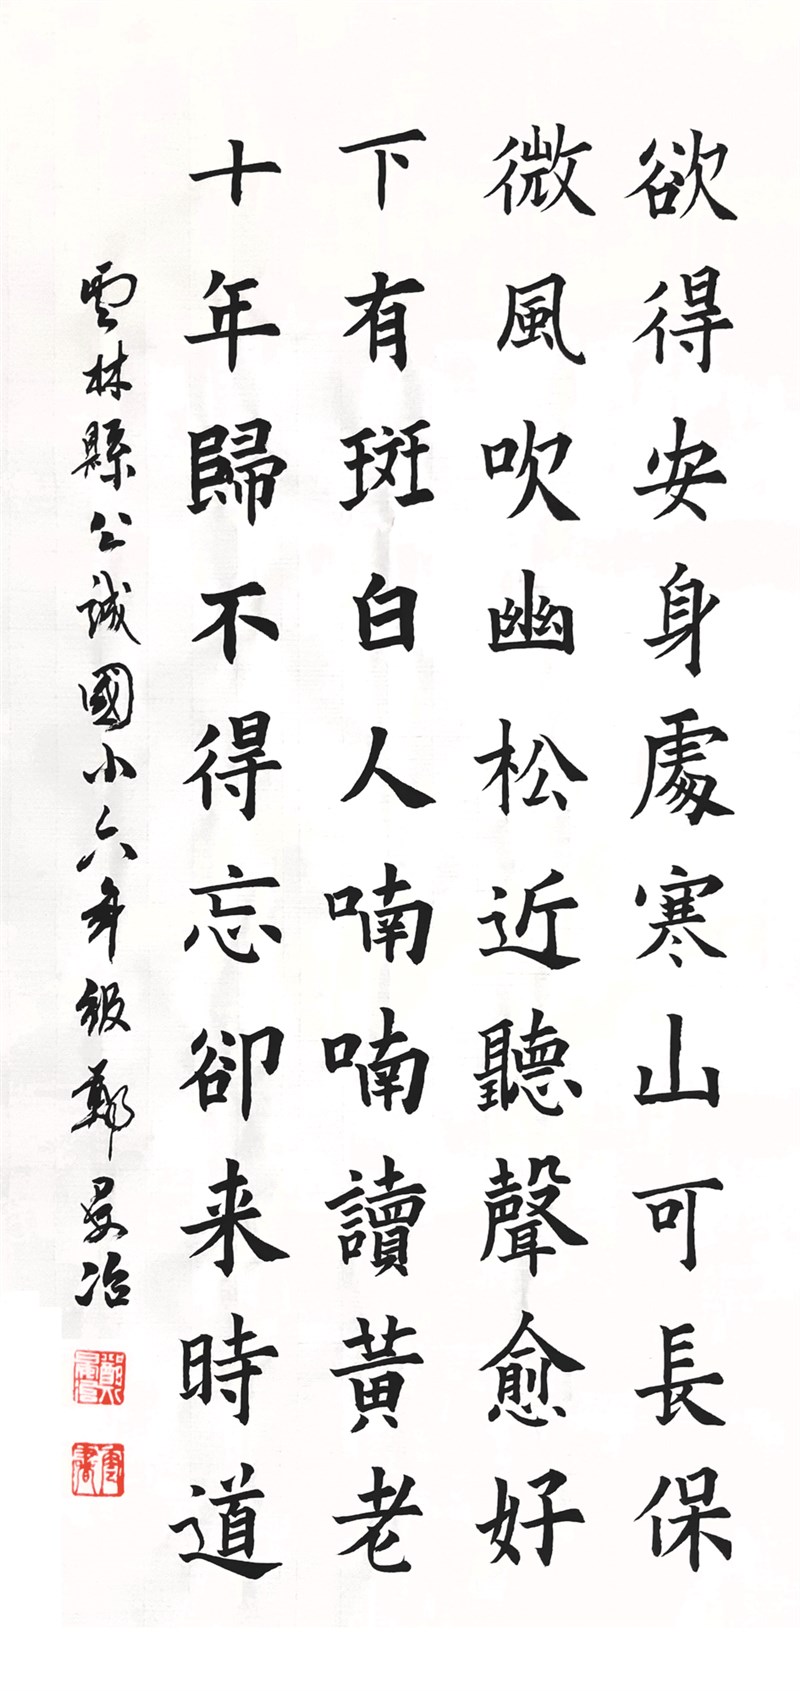 欲得安身處寒山可長保
微風吹幽松近聽聲愈好
下有斑白人喃喃讀黃老
十年歸不得忘卻来時道
雲林縣公誠國小六年級鄭晏冶